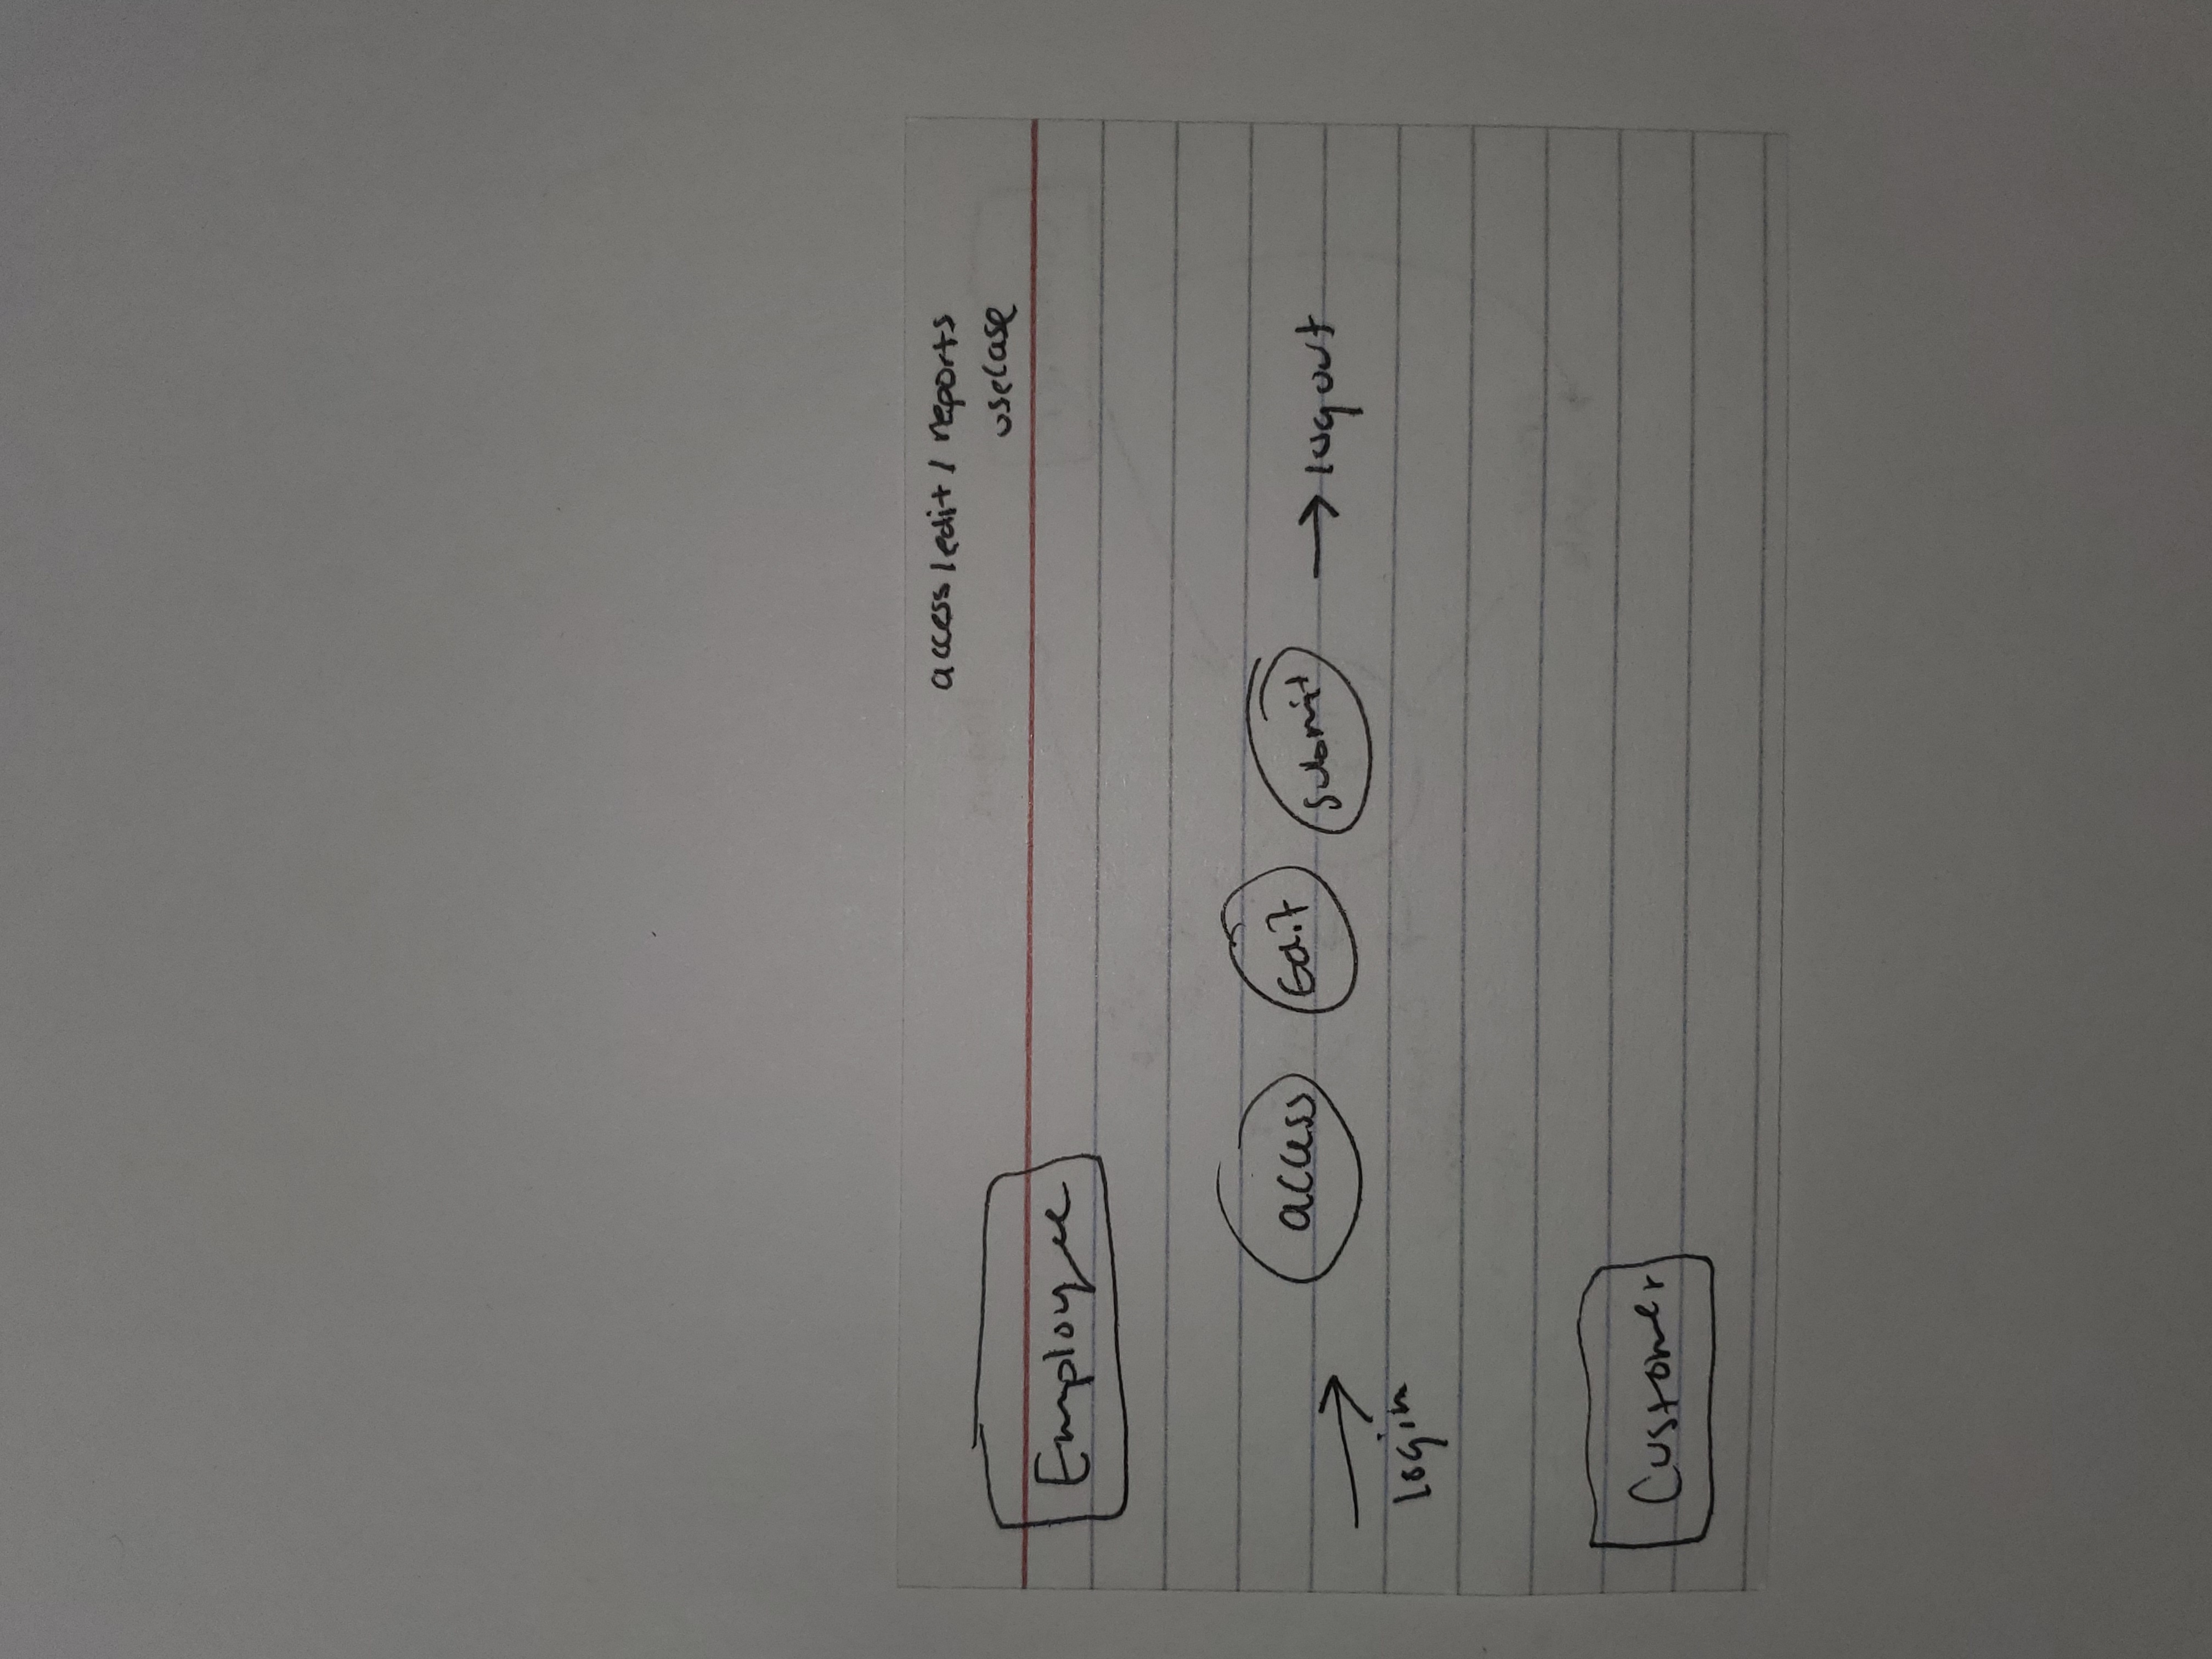 access/edit/ reports
usecase
Employee
access
Edit
submit
→ logout
login
Customer